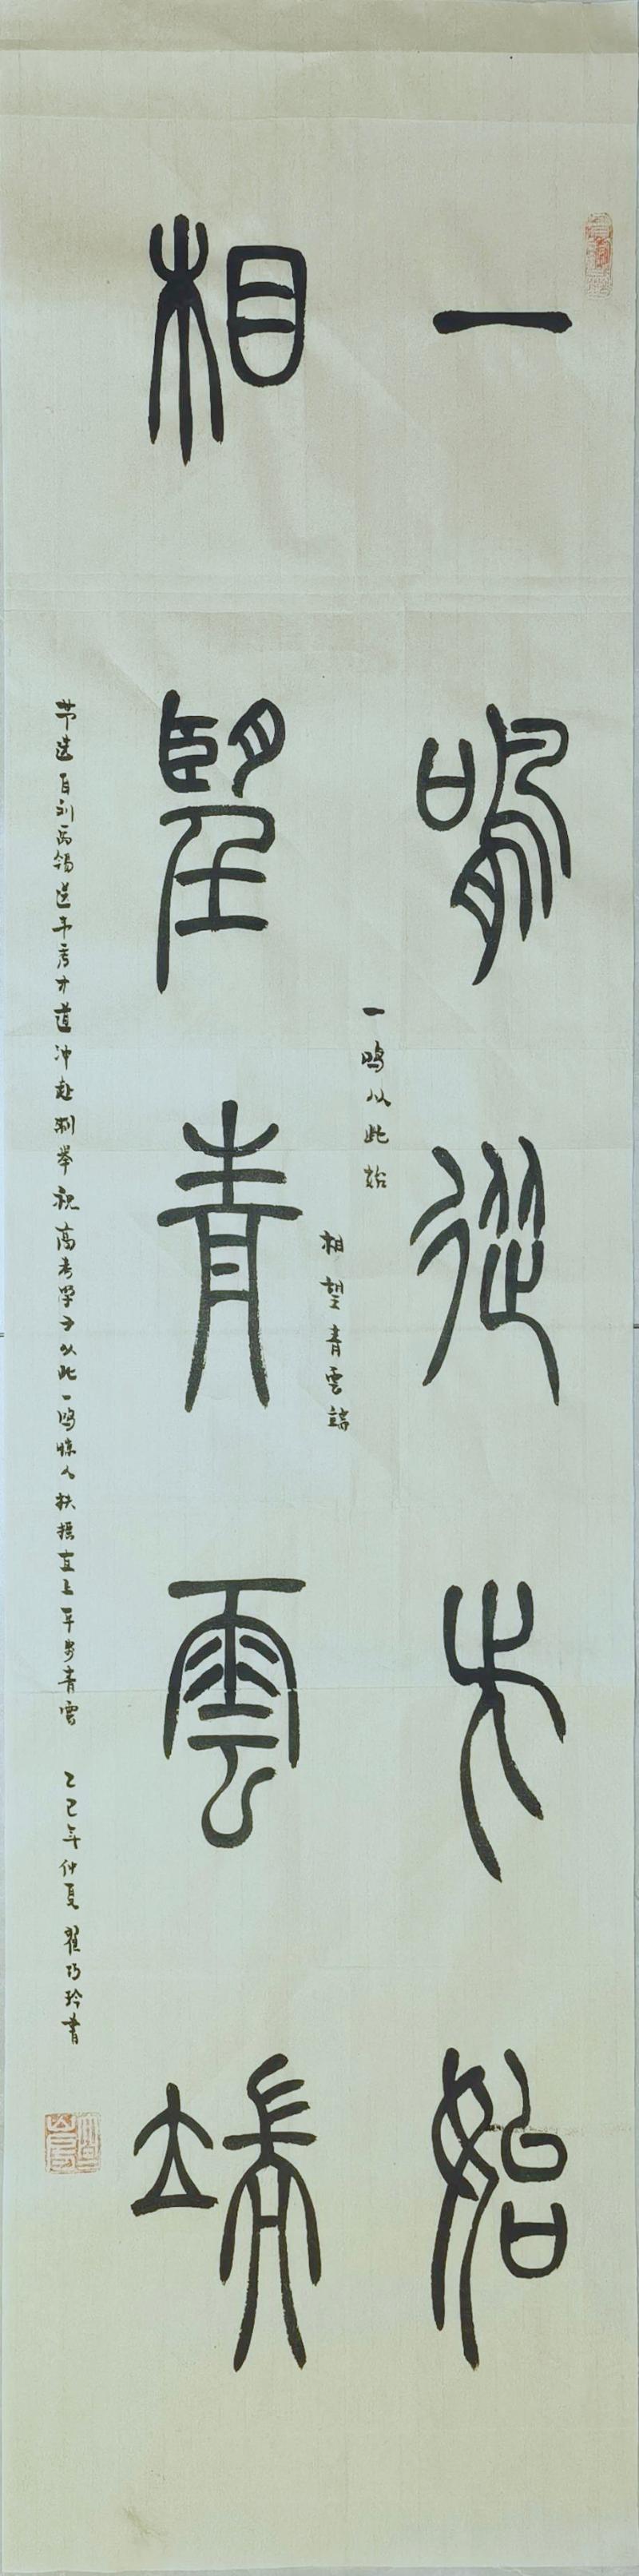 一鳴從此始
一鸣从此始
相望青雲端
相望青雲端
节选自刘禹锡送韦秀才道冲赴制举祝高考学子从此一鸣惊人扶摇直上平步青雲
乙巳年仲夏翟巧玲書